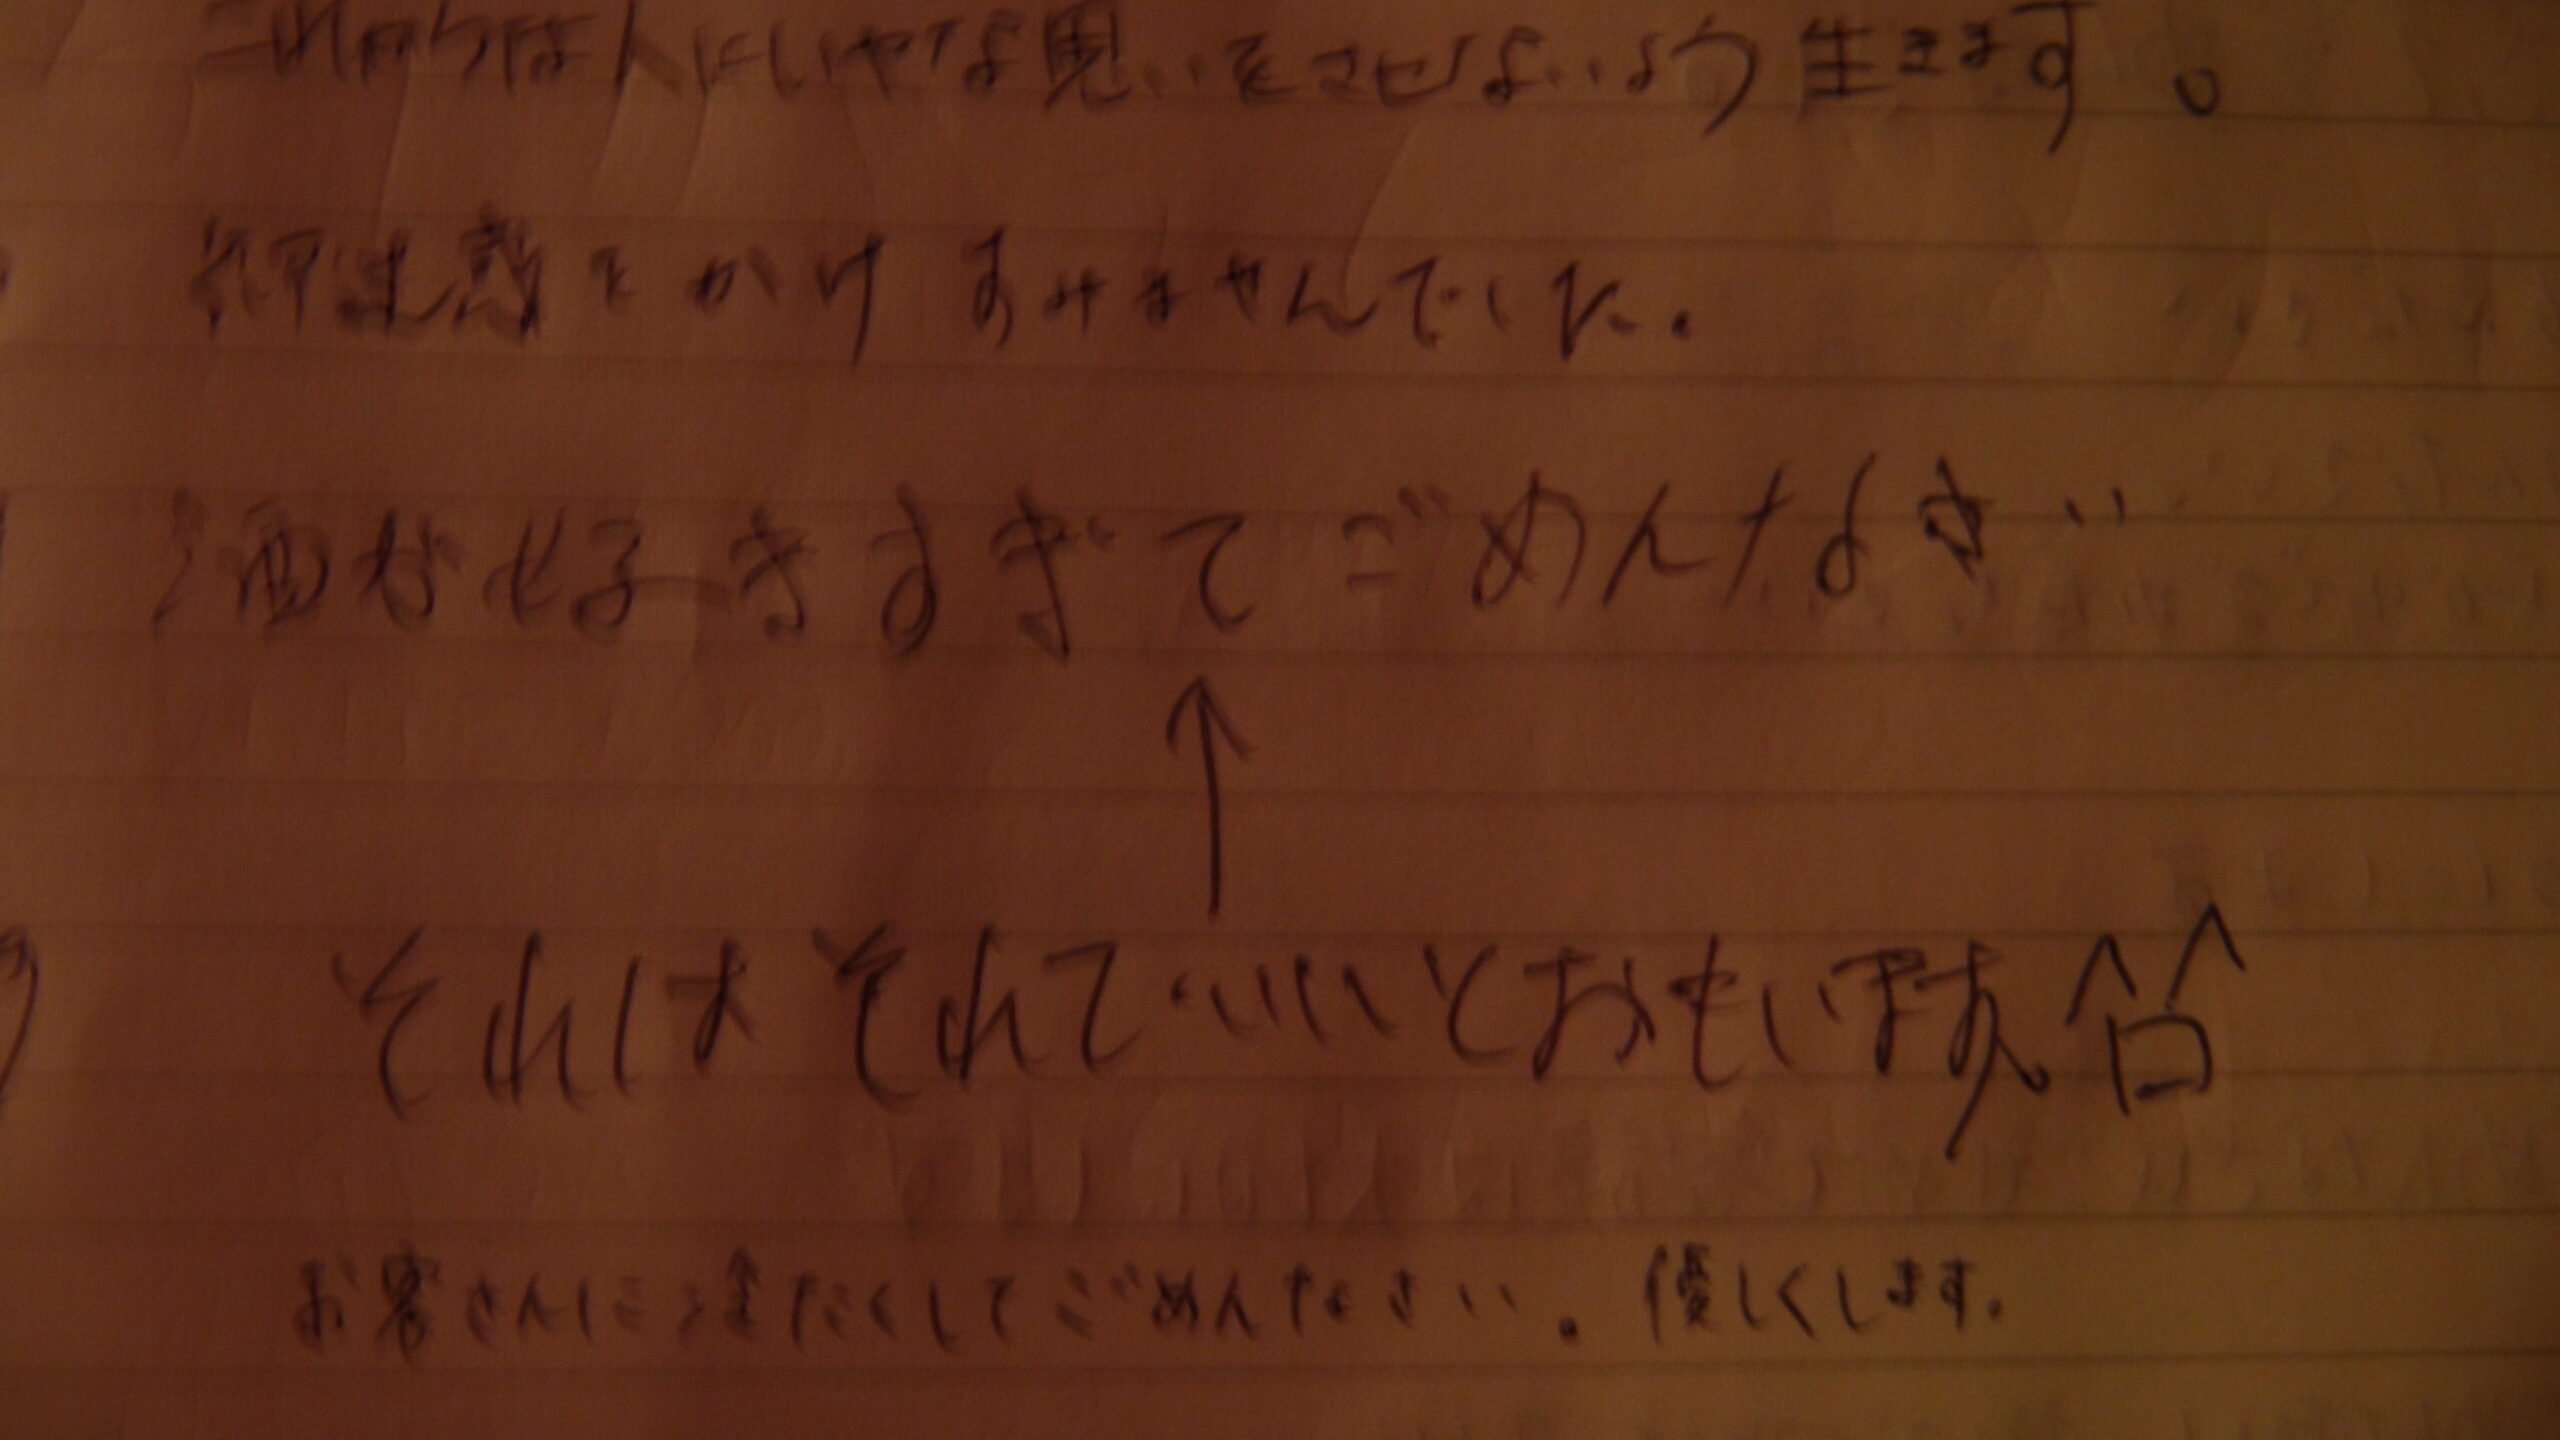 これからは人にいやな思いをさせないよう生きます。
御迷惑をかけすみませんでした.
酒が好きすぎてごめんなさい
↑
それはそれでいいとおもいます
お客さんに冷たくしてごめんなさい. 優しくします.